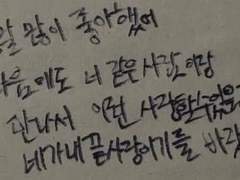 많이 좋아했어
음에도 너 같은 사람이랑
만나서 이런 사랑할 수 있을
네가 내 끝사랑이기를 바랐